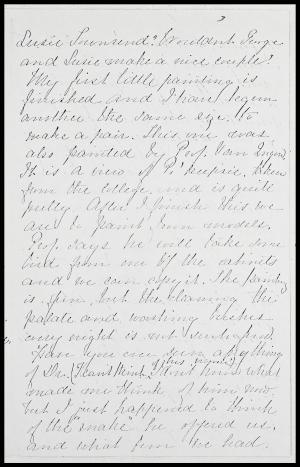 Susie Townsend? Wouldn't George
and Susie make a nice couple?
My first little painting is
finished and I have begun
another the same size to
make a pair. This one was
also painted by Prof. Van Ingen
It is a view of Po'keepsie, taken
from the college, and is quite
pretty. After I finish this we
are to paint from models.
Prof. says he will take some
bird from one of the cabinets
and we can copy it. The painting
is fun, but the cleaning the
palate and washing brushes
every night is not
Have you ever seen anything
of Dr. I don't know what
made me think of him now
but I just happened to think
of the "snake" he offered us.
and what fun we had.